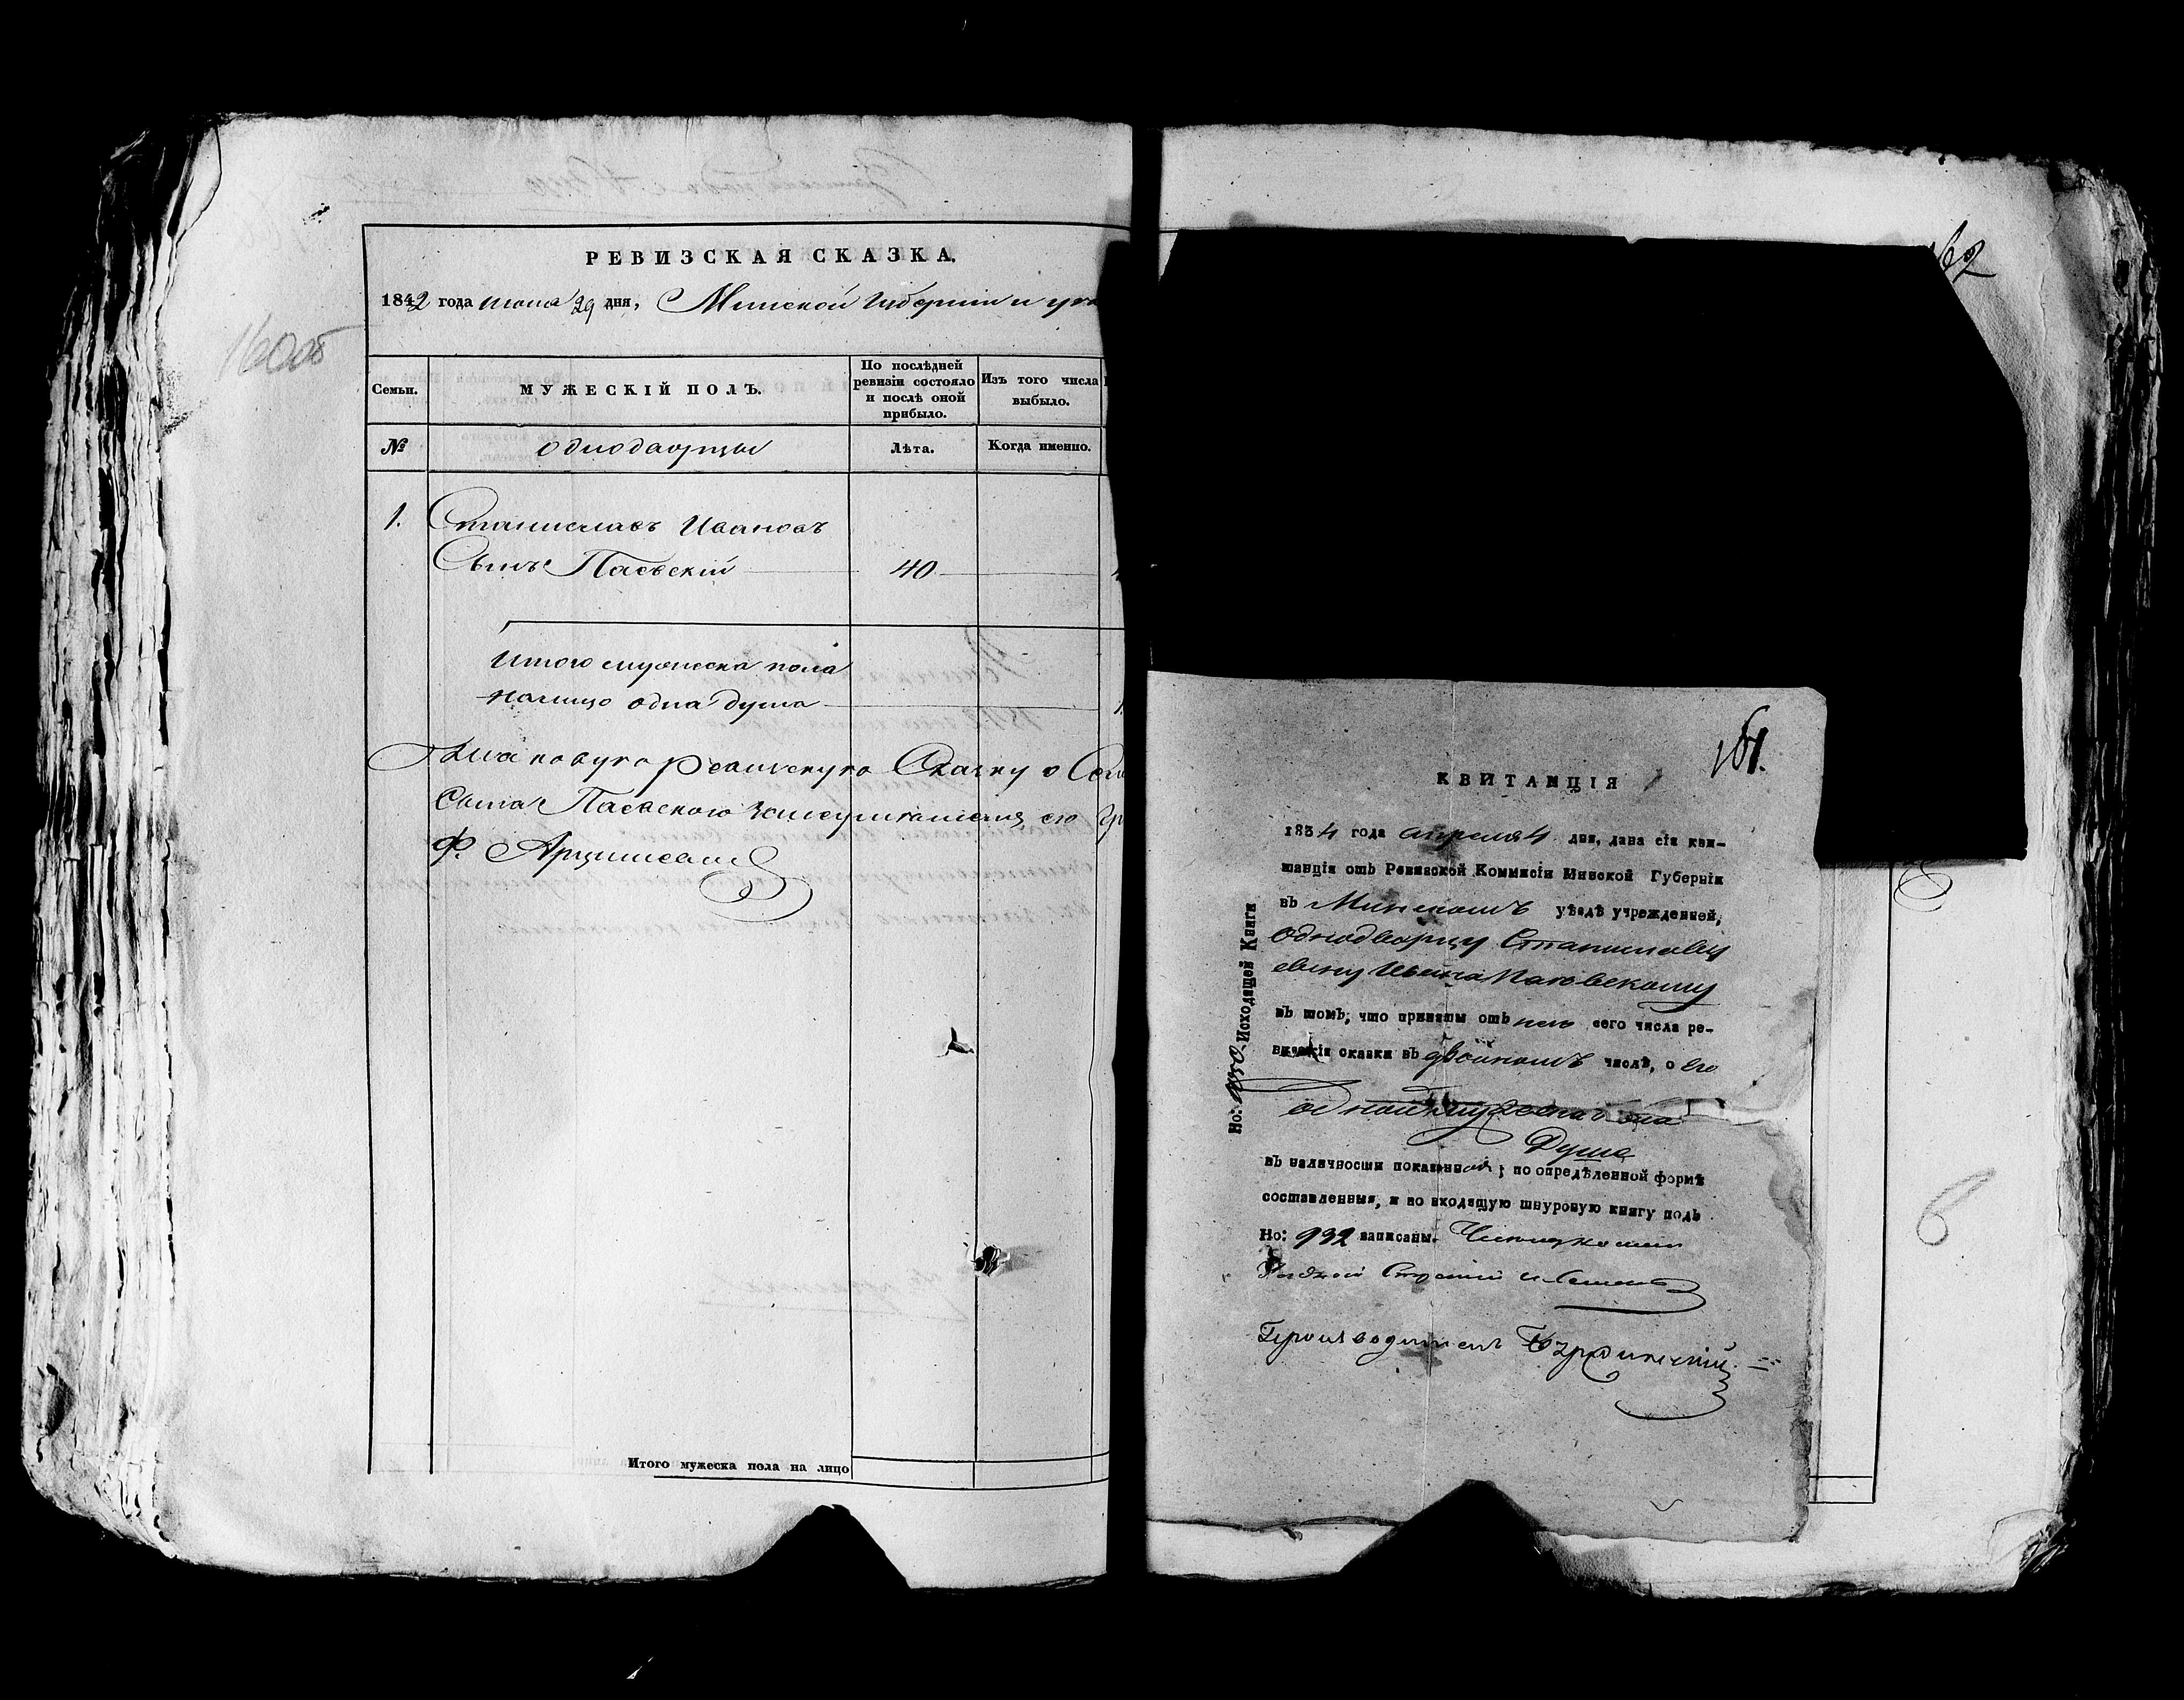 РЕВИЗСКАЯ СКАЗКА.
1842 года июня 29 дня, Минской губернии и
160об
Семьи.
МУЖЕСКІЙ ПОЛЪ.
По послѣдней ревизіи состояло и послѣ оной прибыло.
Изъ того числа выбыло.
№
однодворцы
Лѣта.
Когда именно.
1. Станиславъ Ивановъ
Сынъ Паевскій 40
Итого мужеска пола
налицо одна душа 1.
новую ревизскую Сказку о
Сына Паевского его
Ф.
Итого мужеска пола на лицо
162
161.
КВИТАНЦІЯ
1834 года апреля 4 дня, дана сія кви-
танція отъ Ревизской Коммисіи Минской Губерніи
въ Минскомъ уѣздѣ учрежденной,
однодворцу Станиславу
сыну Ивана Паевскому
въ томъ; что приняты отъ него сего числа ре-
визскія сказки въ двойномъ числѣ, о его
одной мужеска пола
Душе
въ наличности показанной; по опредѣленной формѣ
составленныя, и во входящую шнуровую книгу подъ
Но: 932 записаны.
Производитель
Но: Исходящей Книги